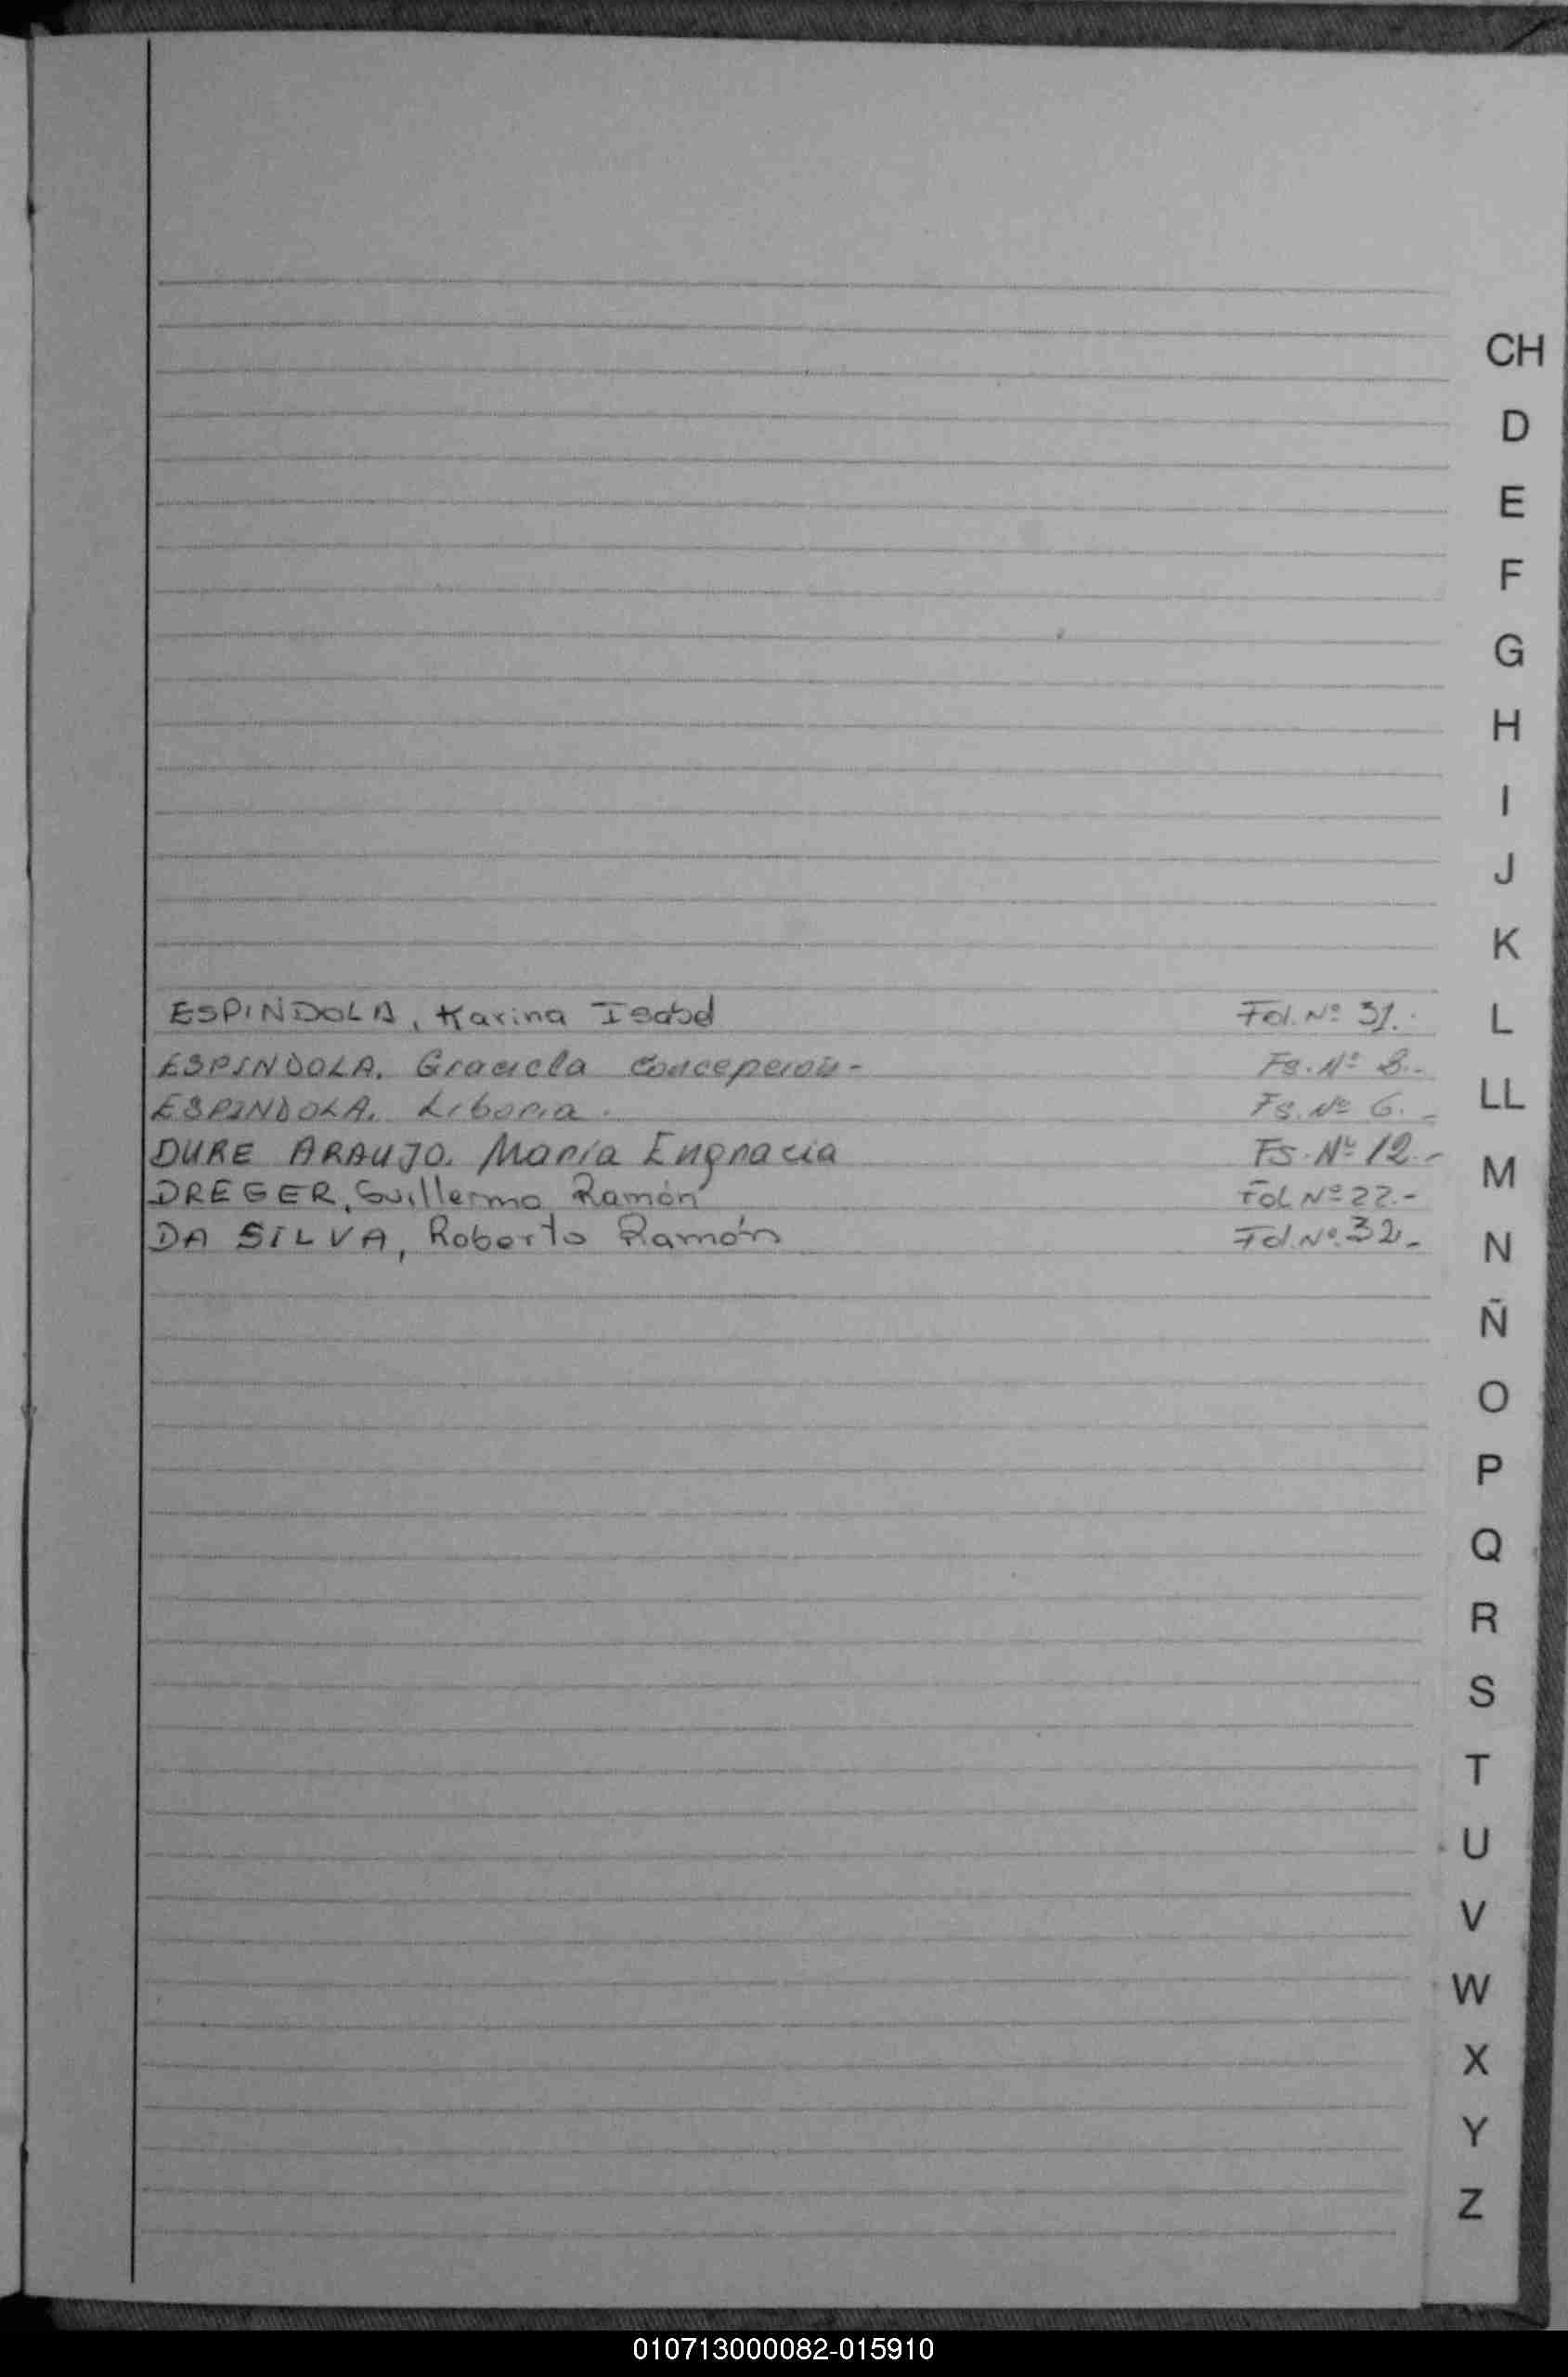 CH
D
E
F
G
H
I
J
K
ESPINDOLA, Karina Isabel Fol. Nº 31.
L
ESPINDOLA. Graciela Concepción- Fs. Nº 8.-
LL
ESPINDOLA. Liboria. Fs. Nº 6. -
DURE ARAUJO. María Engracia Fs. Nº 12.-
M
DREGER, Guillermo Ramón Fol Nº 22.-
DA SILVA, Roberto Ramón Fol. Nº. 32.-
N
Ñ
O
P
Q
R
S
T
U
V
W
X
Y
Z
010713000082-015910